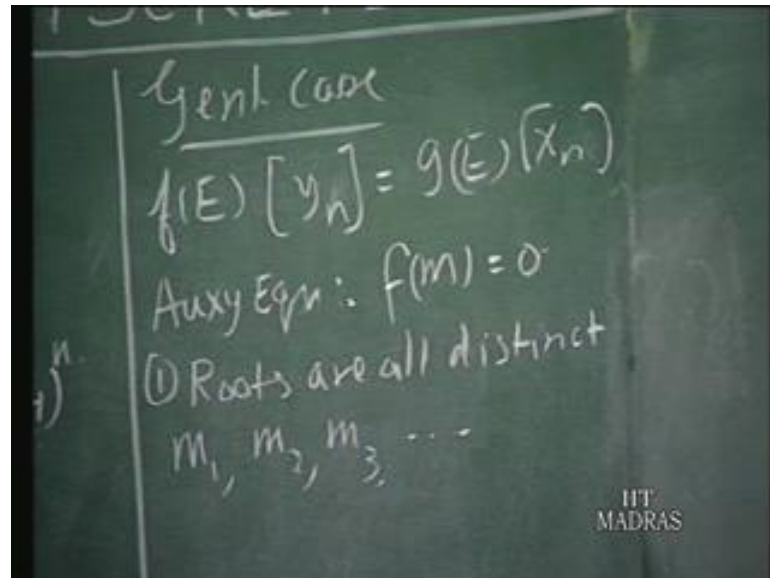 Genl. case
f(E) [yn] = g(E) [xn]
Auxy Eqn: f(m) = 0
n.
① Roots are all distinct
m1, m2, m3, ...
IIT
MADRAS